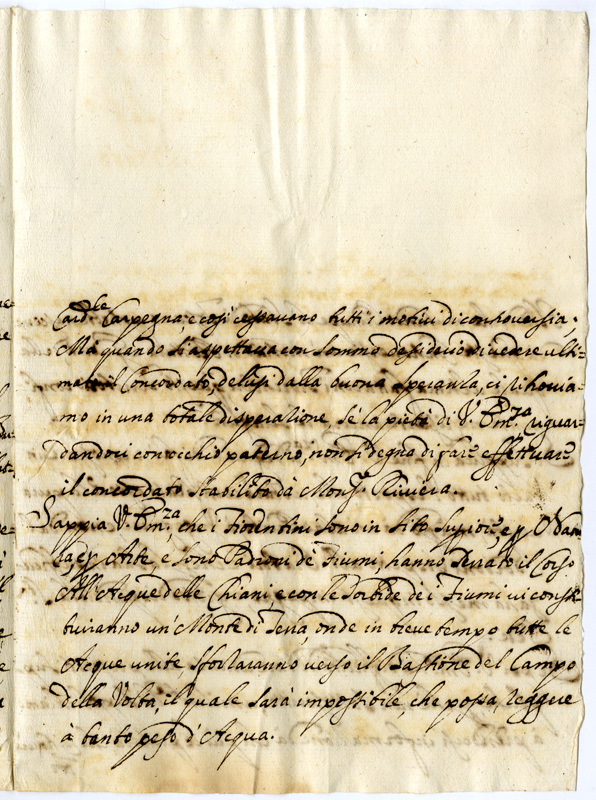 Card.le Carpegna, e così cessavano tutti i motivi di controversia.
Mà quando si aspettava con sommo desiderio di vedere ulti=
mato il Concordato, delusi dalla buona speranza, ci ritrovia=
mo in una totale disperazione, sè la pietà di V. Em.za riguar=
dandoci con occhio paterno, non si degna di far effettuare
il concordato stabilito dà Mons.r Riviera.
Sappia V. Em.za, che i Fiorentini sono in sito superior, e p
Arte, e sono Padroni de Fiumi, hanno serrato il Corso
All'Acque delle Chiani, e con le Torbide de i Fiumi vi consti=
tuiranno un Monte di Terra, onde in breve tempo tutte le
Acque unite sforzaranno verso il Bastione del Campo
della Volta, il quale sarà impossibile, che possa reggere
à tanto peso d'Acqua.